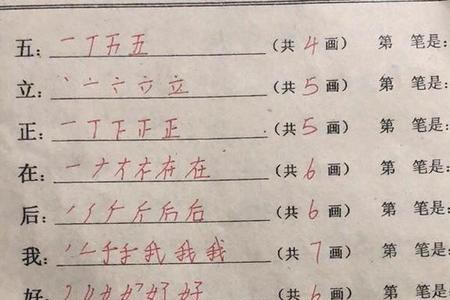 五：一丁五五（共4画）第 笔是：
立：丶亠六立（共5画）第 笔是：
正：一丁下正正（共5画）第 笔是：
在：一ナ才在在（共6画）第 笔是：
后：后后（共6画）第 笔是：
我：我我我（共7画）第 笔是：
好：好好（共6画）第 笔是：